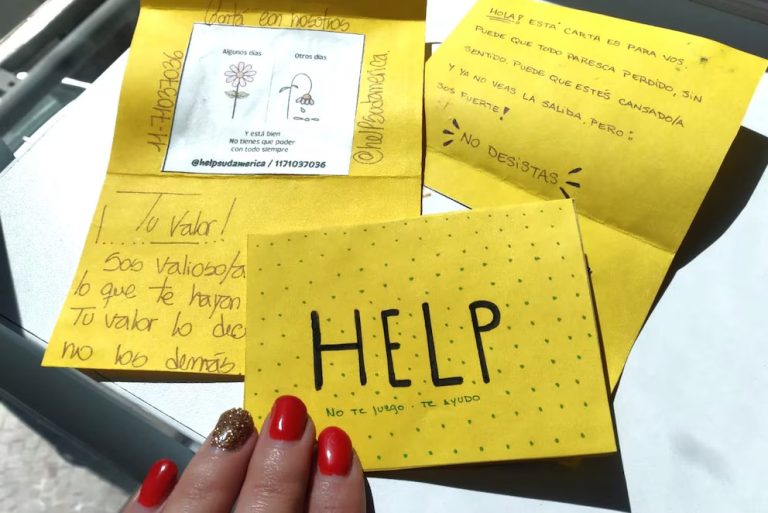 Contá con nosotros
11-71037036
@helpsudamerica
Algunos días
Otros días
Y está bien
No tienes que poder
con todo siempre
@helpsudamerica / 1171037036
Tu Valor!
Sos valioso/a
lo que te hayan
Tu valor lo dec
no los demás
HOLA! ESTÁ CARTA ES PARA VOS.
PUEDE QUE TODO PARESCA PERDIDO, SIN
SENTIDO. PUEDE QUE ESTÉS CANSADO/A
Y YA NO VEAS LA SALIDA. PERO:
SOS FUERTE!
NO DESISTAS
HELP
NO TE JUEGO. TE AYUDO